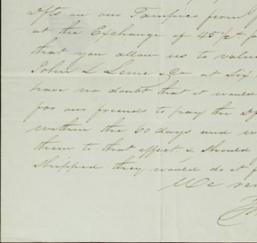 Dfts on our Tampico from
at the Exchange of 45 1/2
that you allow us to value
John L & Co at Six
have no doubt that it would
for our friends to pay the
within the 60 days and
them to that effect & should
shipped they would do it
We